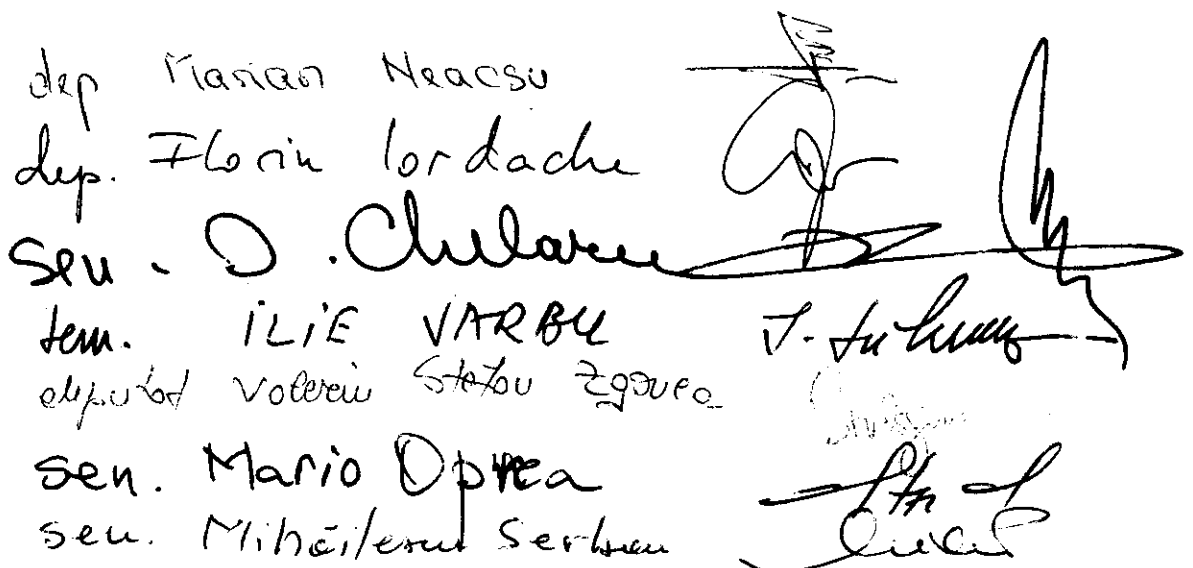 dep Marian Neacsu
dep. Florin Iordache
sen. D. Chelaru
sem. ILIE VARBU
deputat Valeriu Stefan Zgonea
sen. Mario Oprea
sen. Mihăilescu Serban